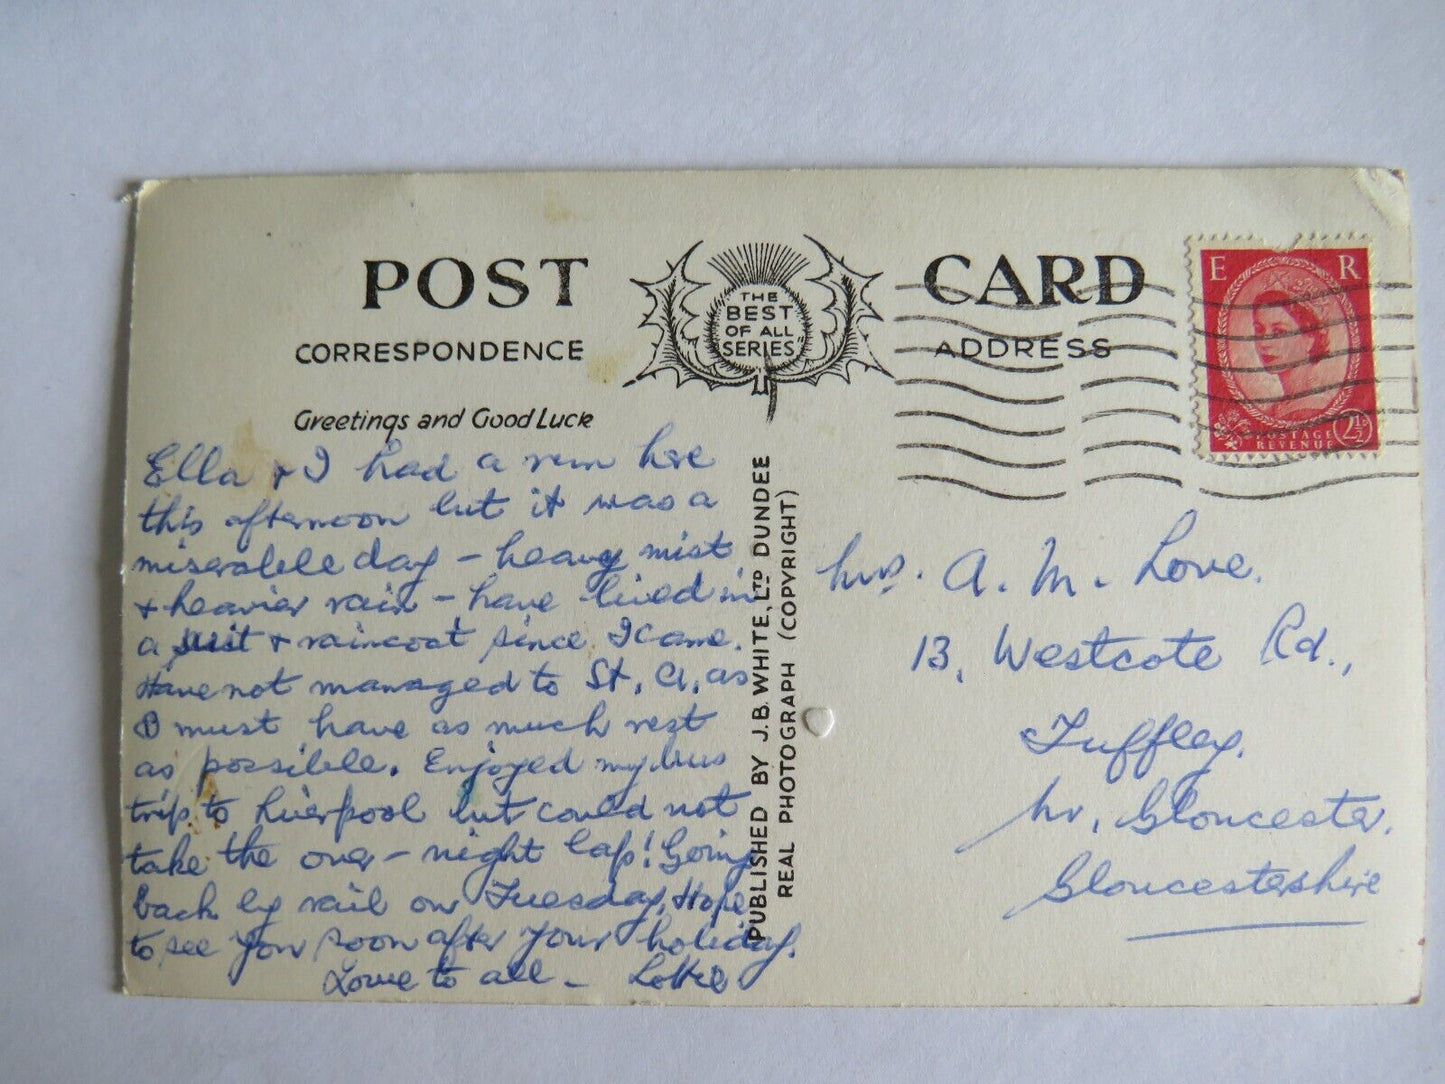 POST CARD
THE
BEST
OF ALL
SERIES
CORRESPONDENCE
ADDRESS
Greetings and Good Luck
E R
POSTAGE
REVENUE
2½D
Ella & I had a run here
this afternoon but it was a
miserable day - heavy mist
& heavier rain - have lived in
a suit & raincoat since I came.
Have not managed to St. A, as
I must have as much rest
as possible. Enjoyed my bus
trip to Liverpool but could not
take the over-night lap! Going
back by rail on Tuesday. Hope
to see you soon after your holiday.
Love to all - Lottie
PUBLISHED BY J.B. WHITE, LTD DUNDEE
REAL PHOTOGRAPH (COPYRIGHT)
Mrs. A. M. Love.
13, Westcote Rd.,
Tuffley.
Nr. Gloucester.
Gloucestershire